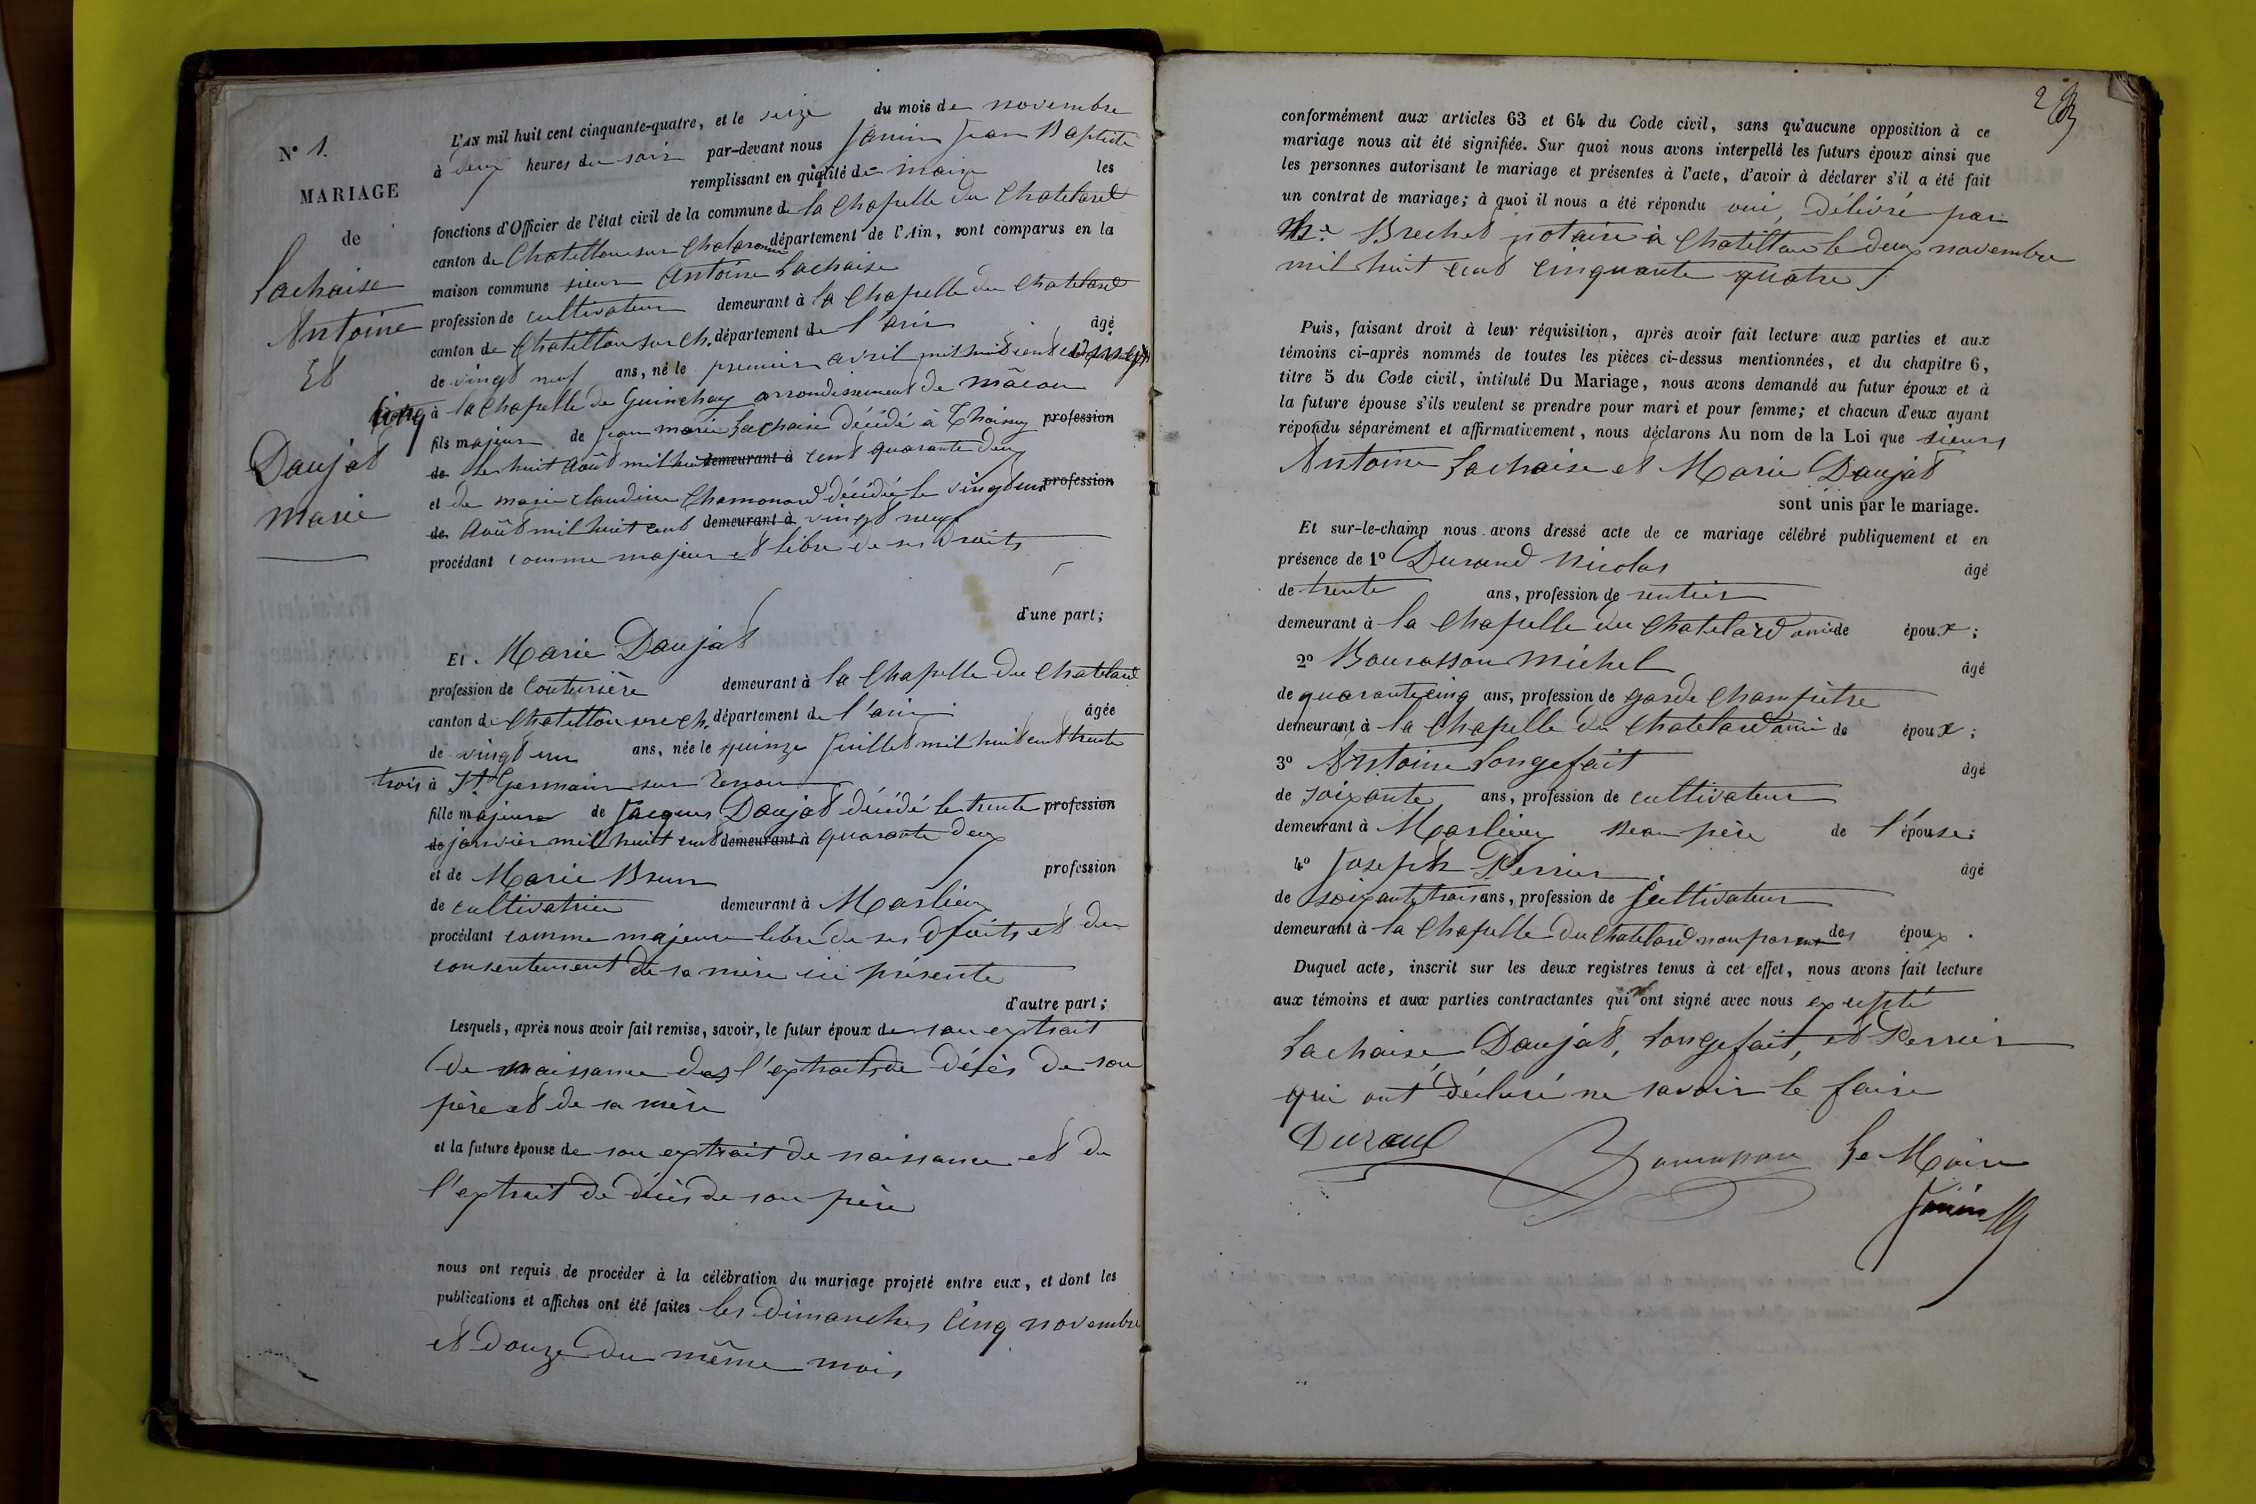 N° 1.
MARIAGE
de
Lachaise
Antoine
Et
Daujat
marie
L'AN mil huit cent cinquante-quatre, et le seize du mois de novembre
à deux heures du soir par-devant nous Janin Jean Baptiste
remplissant en qualité de maire les
fonctions d'Officier de l'état civil de la commune de la Chapelle du Chatelard
canton de Chatillon sur Chalaronne département de l'Ain, sont comparus en la
maison commune sieur Antoine Lachaise
profession de cultivateur demeurant à la Chapelle du Chatelard
canton de Chatillon sur Ch. département de l'ain âgé
de vingt neuf ans, né le premier avril mil huit cent vingt
cinq à la Chapelle de Guinchay arrondissement de mâcon
fils majeur de Jean marie Lachaise décédé à Thoissey profession
de le huit août mil huit demeurant à cent quarante deux
et de marie claudine Chamonard décédée le vingt deux profession
de août mil huit cent demeurant à vingt neuf
procédant comme majeur et libre de ses droits
d'une part;
Et Marie Daujat
profession de Couturière demeurant à la Chapelle du Chatelard
canton de Chatillon sur Ch. département de l'ain âgée
de vingt un ans, née le quinze Juillet mil huit cent trente
trois à St Germain sur Renon
fille majeure de Jacques Daujat décédé le trente profession
de janvier mil huit cent demeurant à quarante deux
et de Marie Brun profession
de cultivatrice demeurant à Marlieux
procédant comme majeure libre de ses droits et du
consentement de sa mère ici présente
d'autre part;
Lesquels, après nous avoir fait remise, savoir, le futur époux de son extrait
de naissance des l'extraits de décès de son
père et de sa mère
et la future épouse de son extrait de naissance et de
l'extrait de décès de son père
nous ont requis de procéder à la célébration du mariage projeté entre eux, et dont les
publications et affiches ont été faites les Dimanches cinq novembre
et douze du même mois
conformément aux articles 63 et 64 du Code civil, sans qu'aucune opposition à ce
mariage nous ait été signifiée. Sur quoi nous avons interpellé les futurs époux ainsi que
les personnes autorisant le mariage et présentes à l'acte, d'avoir à déclarer s'il a été fait
un contrat de mariage; à quoi il nous a été répondu oui, délivré par
Me Brechet notaire à Chatillon le deux novembre
mil huit cent cinquante quatre
Puis, faisant droit à leur réquisition, après avoir fait lecture aux parties et aux
témoins ci-après nommés de toutes les pièces ci-dessus mentionnées, et du chapitre 6,
titre 5 du Code civil, intitulé Du Mariage, nous avons demandé au futur époux et à
la future épouse s'ils veulent se prendre pour mari et pour femme; et chacun d'eux ayant
répondu séparément et affirmativement, nous déclarons Au nom de la Loi que sieurs
Antoine Lachaise et Marie Daujat
sont unis par le mariage.
Et sur-le-champ nous avons dressé acte de ce mariage célébré publiquement et en
présence de 1° Durand Nicolas âgé
de trente ans, profession de rentier
demeurant à la Chapelle du Chatelard ami de époux;
2° Bourasson Michel âgé
de quarante cinq ans, profession de garde champêtre
demeurant à la Chapelle du Chatelard ami de époux;
3° Antoine Longefait âgé
de soixante ans, profession de cultivateur
demeurant à Marlieux Beau père de l'épouse;
4° Joseph Perrier âgé
de soixante trois ans, profession de Cultivateur
demeurant à la Chapelle du Chatelard non parent des époux.
Duquel acte, inscrit sur les deux registres tenus à cet effet, nous avons fait lecture
aux témoins et aux parties contractantes qui ont signé avec nous excepté
Lachaise Daujat, Longefait, et Perrier
qui ont déclaré ne savoir le faire
Durand Bourasson Le Maire
Janin